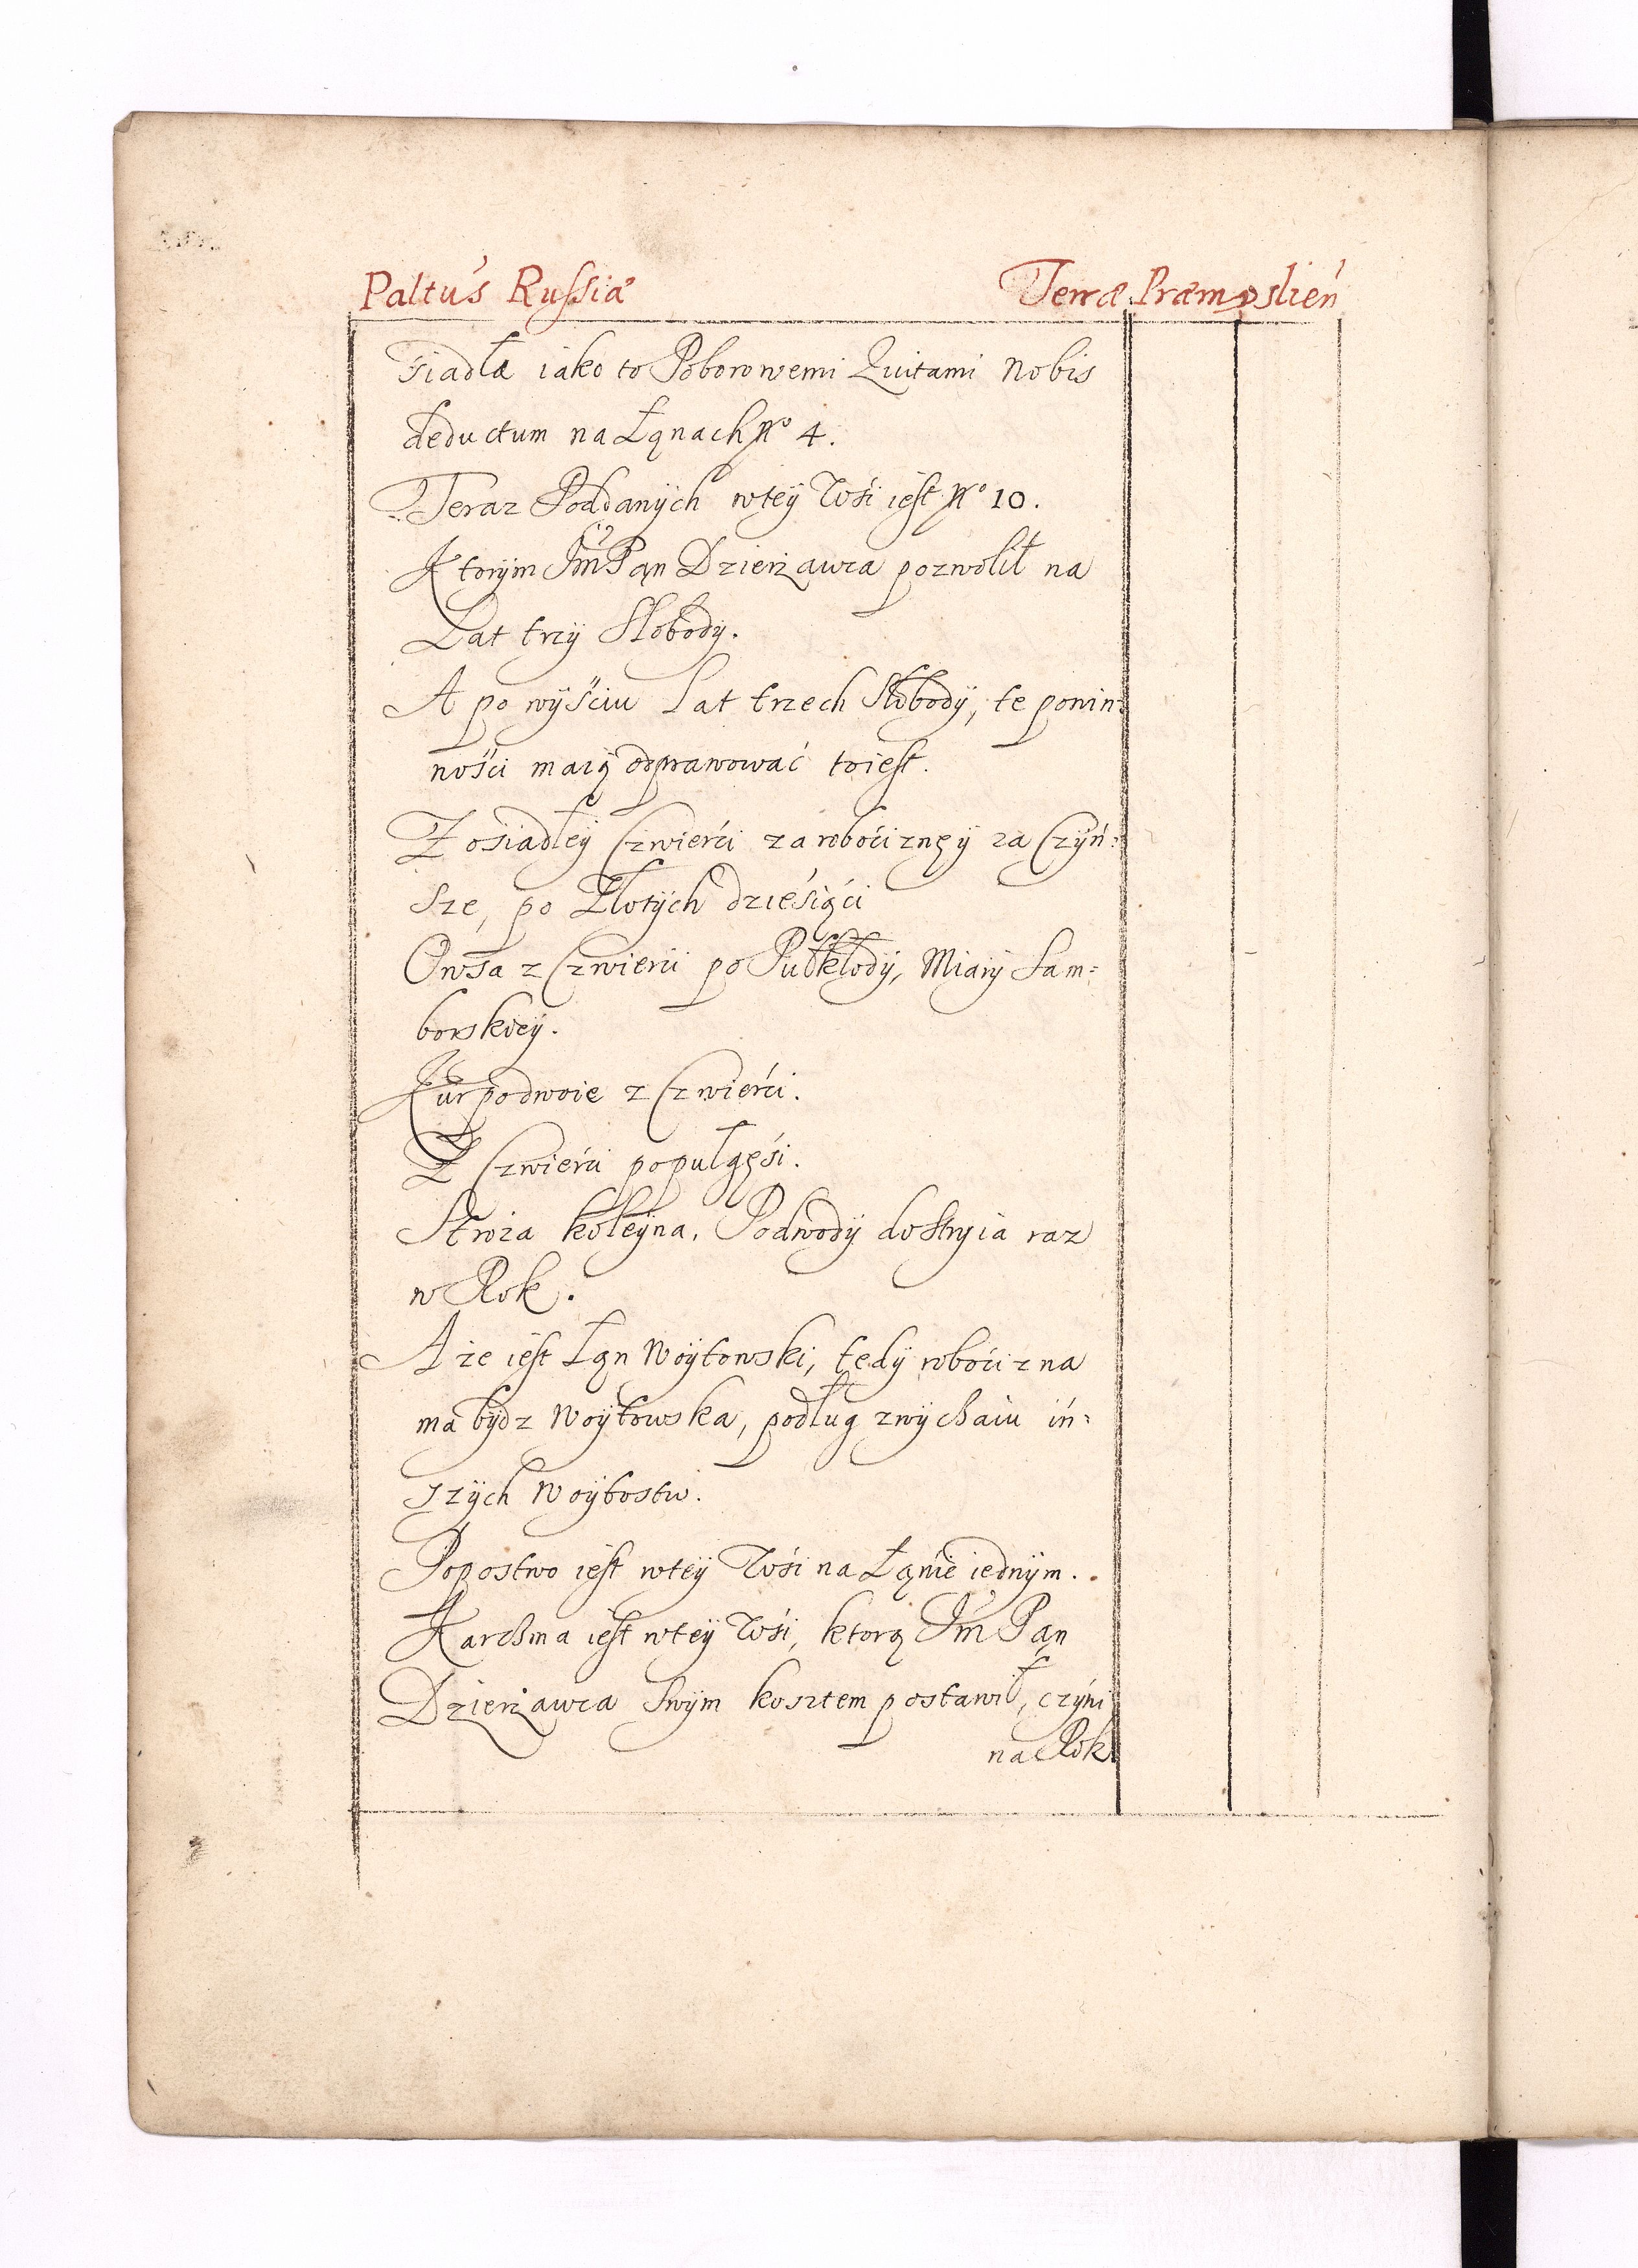 Paltus Russiæ Terræ Præmyslień
siadła iako to Poborowemi Quitami Nobis
deductum na Łąnach Nº 4.
Teraz Poddanÿch wteÿ Wśi iest Nº 10.
Ktorÿm JmPąn Dzierżawca pozwolił na
Lat trzÿ Słobodÿ.
A po wÿśćiu Lat trzech Słobodÿ, te powin=
nośći maią odprawować toiest.
Z ośiadłeÿ Czwierći za roboćiznęÿ za Czÿń=
sze, po Złotÿch dźieśiąći
Owsa z Czwierći po Pułkłodÿ, Miarÿ Sam=
borskieÿ.
Kur podwoie z Czwierći.
Z Czwierći popułgęśi.
Stroża koleÿna. Podwodÿ do Stryia raz
w Rok.
A że iest Łąn Woÿtowski, tedÿ roboćizna
ma bÿdz Woÿtowska, podług zwÿchaiu iń=
szÿch Woÿtostw.
Popostwo iest wteÿ Wśi na Łąnie iednÿm.
Karchma iest wteÿ Wśi, ktorą Jm Pąn
Dzierżawca swÿm kosztem postawił, czÿni
na Rok